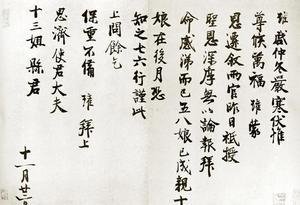 瓘啟仲冬嚴寒伏惟
尊候萬福 瓘蒙
恩遷敘兩官昨日祗授
聖恩深厚無以論報拜
命感涕而已五八娘已成親十
娘在後月恐
知之七六行謹此
上聞餘乞
保重不備 瓘 拜上
思濟使君大夫
十三姐縣君
十一月廿